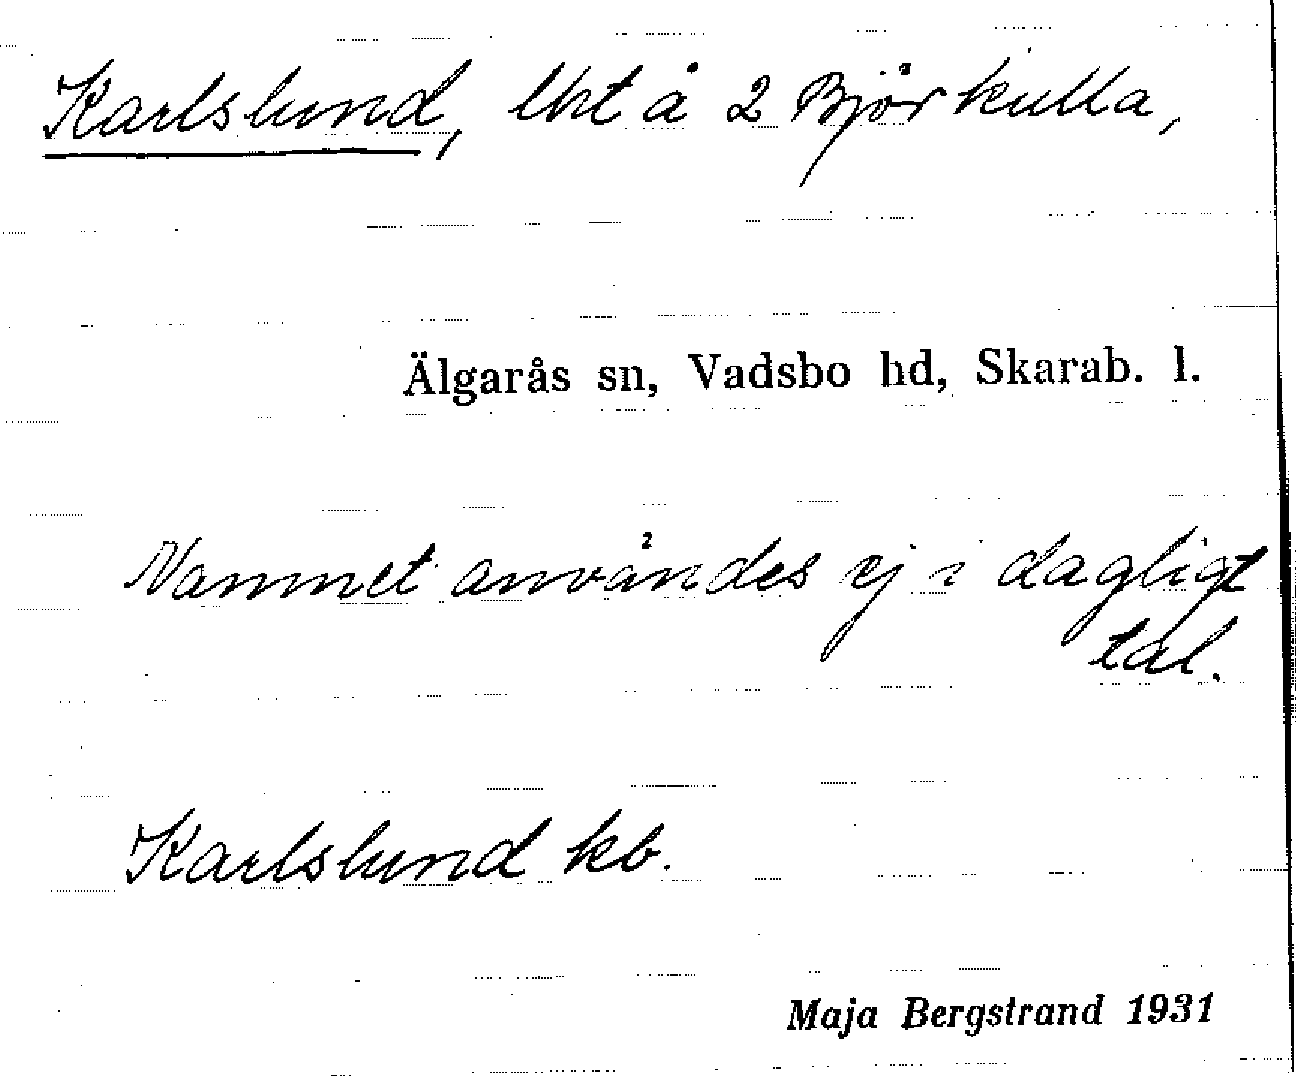 Karlslund, lht å 2 Björkulla,
Älgarås sn, Vadsbo hd, Skarab. l.
Namnet användes ej i dagligt
tal.
Karlslund kb.
Maja Bergstrand 1931